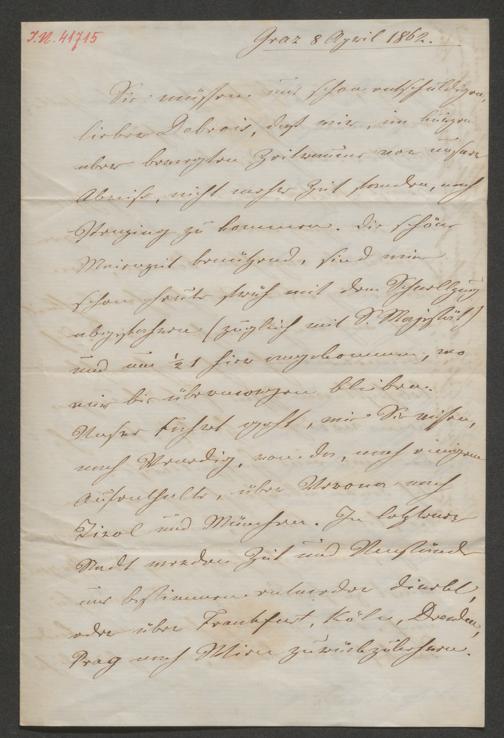 I.N. 41715
Graz 8 April 1862.
Sie müssen uns schon entschuldigen,
lieber Debrois, daß wir, im kurzen
aber bewegten Zeitraume vor unserer
Abreise, nicht mehr Zeit fanden, nach
Penzing zu kommen. Die schöne
Maienzeit benützend, sind wir
schon heute früh mit dem Schnellzug
abgefahren (zugleich mit Sr Majestät)
und um ½ 1 hier angekommen, wo
wir bis übermorgen bleiben.
Unsere Fahrt geht, wie Sie wissen,
nach Venedig, von da, nach einigem
Aufenthalte, über Verona nach
Tirol und München. In letzterer
Stadt werden Zeit und Umstände
uns bestimmen entweder direkt,
oder über Frankfurt, Köln, Dresden,
Prag nach Wien zurückzukehren.